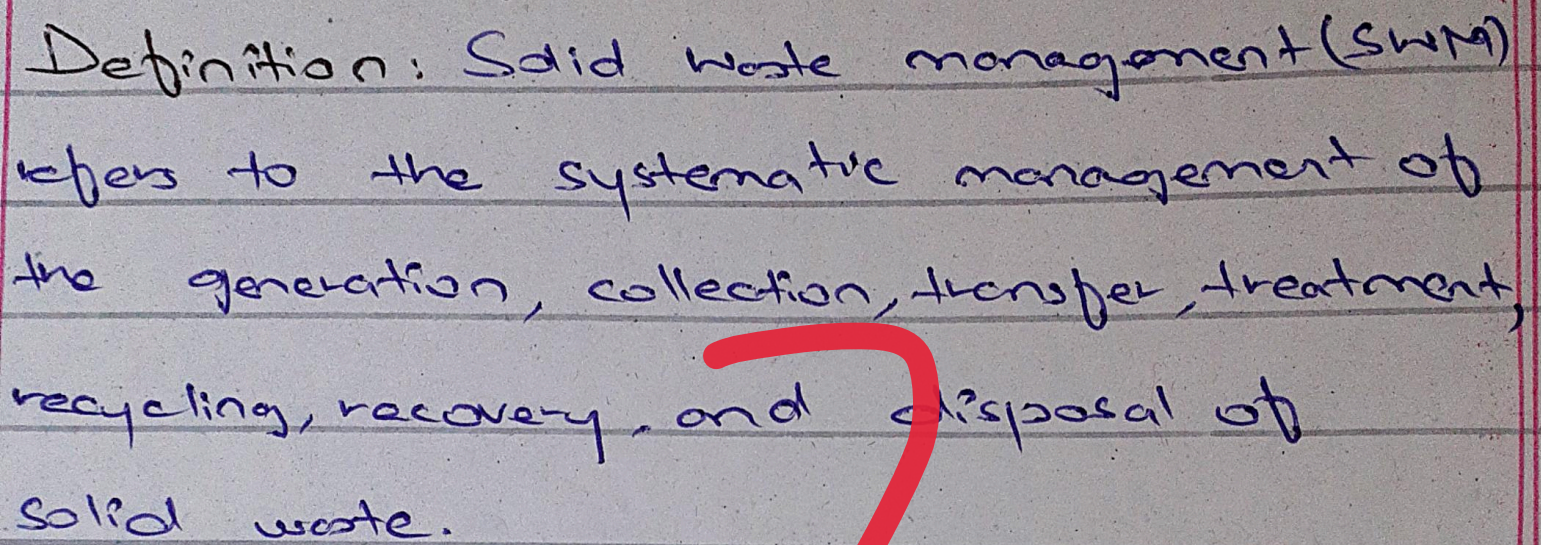 Definition: Solid waste management (SWM)
refers to the systematic management of
the generation, collection, transfer, treatment,
recycling, recovery, and disposal of
solid waste.